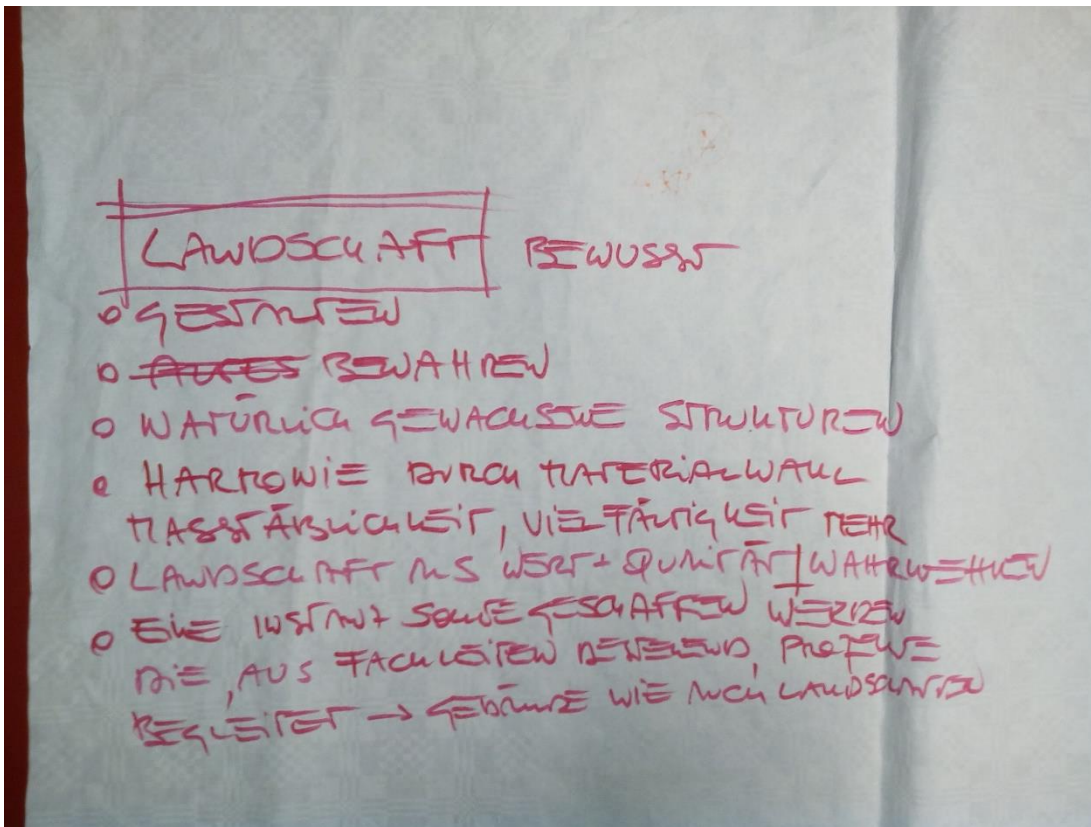 LANDSCHAFT BEWUSST
o GESTALTEN
o BEWAHREN
o NATÜRLICH GEWACHSENE STRUKTUREN
o HARMONIE DURCH MATERIALWAHL
MASSTÄBLICHKEIT, VIELFÄLTIGKEIT MEHR
o LANDSCHAFT ALS WERT + QUALITÄT WAHRNEHMEN
o EINE INSTANZ SOLLTE GESCHAFFEN WERDEN
DIE, AUS FACHLEUTEN BESTEHEND, PROJEKTE
BEGLEITET → GEBÄUDE WIE AUCH LANDSCHAFTEN